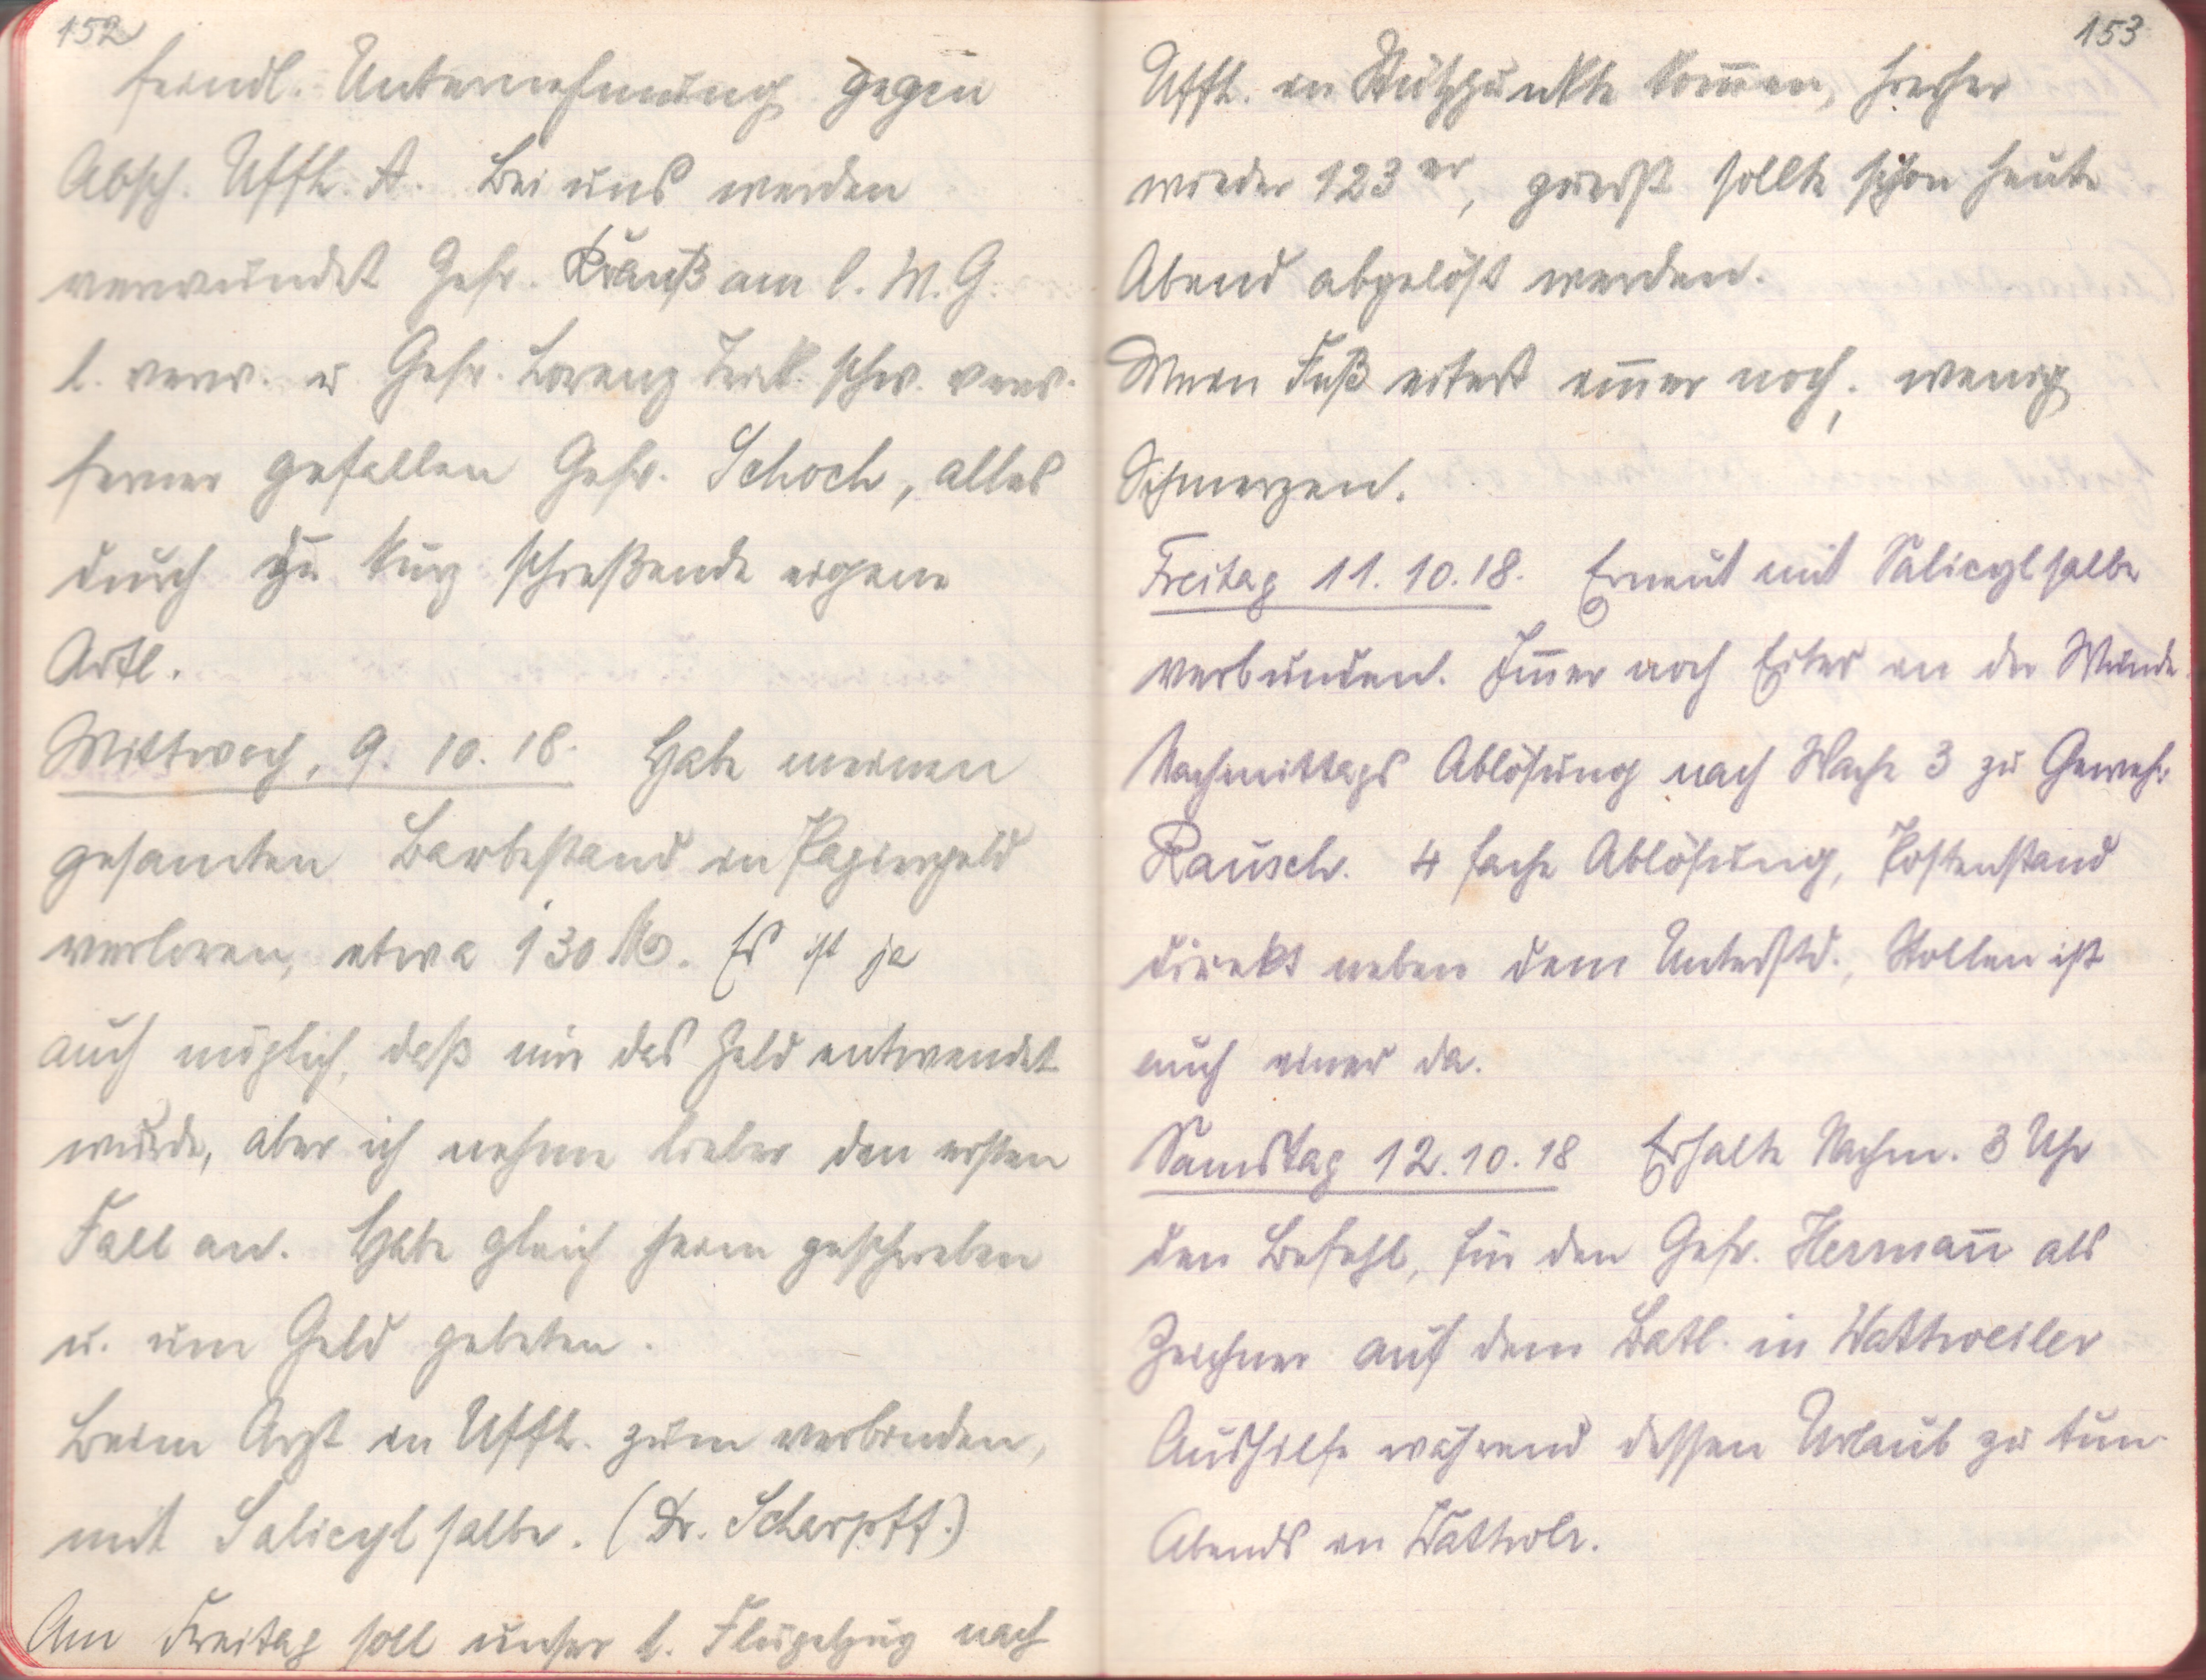 152
feindl. Unternehmung gegen
Absch. Uffh. A. Bei uns werden
verwundet Gefr. Krauß am l. M. G.
l. verw. u Gefr. Lorenz schw. verw.
ferner gefallen Gefr. Schoch, alles
durch zu kurz schießende eigene
Artl.
Mittwoch, 9. 10. 18. Habe meinen
gesamten Barbestand in Papiergeld
verloren, etwa 130 M. Es ist ja
auch möglich, daß mir das Geld entwendet
wurde, aber ich nehme lieber den ersten
Fall an. Habe gleich heim geschrieben
u. um Geld gebeten.
Beim Arzt in Uffh. zum verbinden,
mit Salicylsalbe. (Dr. Scharpff.)
Am Freitag soll unser l. Flügelzug nach
153
Uffh. in Stützpunkte kom̅en, hieher
wieder 123er, zuerst sollte schon heute
Abend abgelöst werden.
Mein Fuß eitert im̅er noch; wenig
Schmerzen.
Freitag 11. 10. 18. Erneut mit Salicylsalbe
verbunden. Im̅er noch Eiter in der Wunde.
Nachmittags Ablösung nach Wache 3 zu Gewehr
Rausch. 4 fache Ablösung, Postenstand
direkt neben dem Unterstd., Stollen ist
auch einer da.
Samstag 12. 10. 18 Erhalte Nachm. 3 Uhr
den Befehl, für den Gefr. Herman̅ als
Zeichner auf dem Batl. in Wattweiler
Aushilfe während dessen Urlaub zu tun.
Abends in Wattwlr.